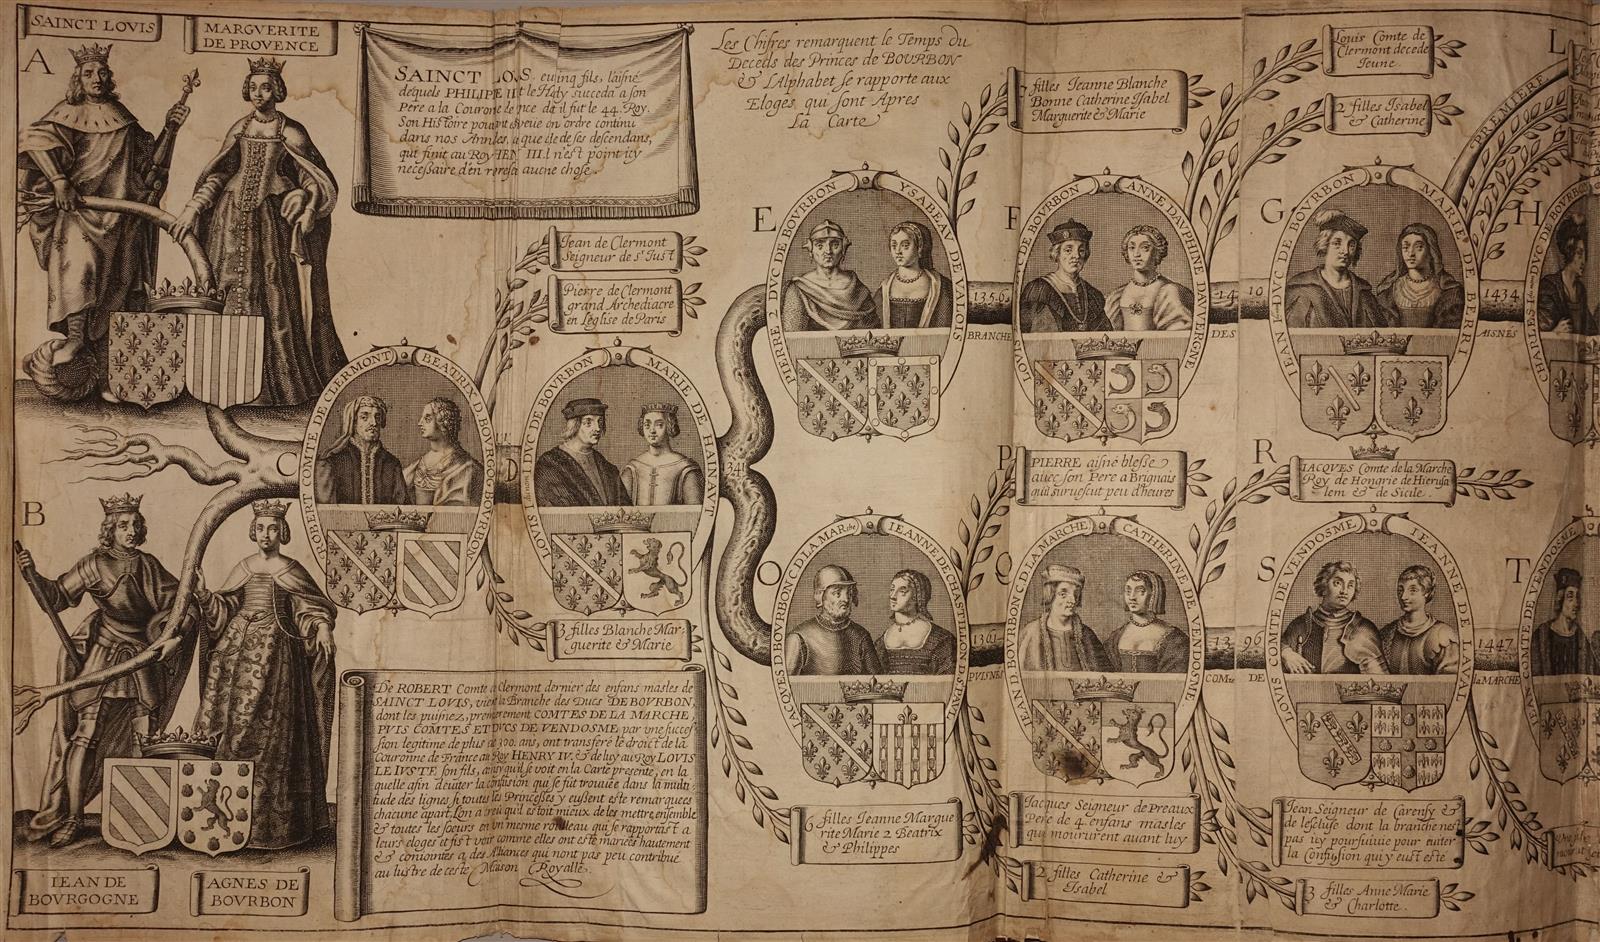 SAINCT LOVIS
MARGVERITE
DE PROVENCE
A
SAINCT LO S, eu cinq fils, laisné
dequels PHILIPE II le Hardy succeda a son
Pere a la Couronne de nce dõ il fut le 44. Roy.
Son Histoire pouvant veüe en ordre continu
dans nos Annles, que de de ses descendans,
qui finit au Roy HEN III. il n'est point icy
necessaire d'en aucune chose.
Les Chifres remarquent le Temps du
Deceds des Princes de BOURBON
& L'Alphabet se rapporte aux
Eloges qui sont Apres
La Carte
7 filles Ieanne Blanche
Bonne Catherine Isabel
Marguerite & Marie
Louis Comte de
Clermont decede
Ieune.
2 filles Isabel
& Catherine
PREMIERE
L
Jean de Clermont
Seigneur de st Iust
Pierre de Clermont
grand Archediacre
en Leglise de Paris
E
PIERRE 2 DVC DE BOVRBON
YSABEAV DE VALOIS
1356
BRANCHE
F
LOVIS DVC DE BOVRBON
ANNE DAVPHINE DAVERGNE
14 10
DES
G
IEAN DVC DE BOVRBON
MARIE DE BERRI
1434
AISNES
H
CHARLES DVC DE BOVRBON
C
ROBERT COMTE DE CLERMONT
BEATRIX D. BOVRGOG. BOVRBON
D
LOVIS I. du nom I. DVC DE BOVRBON
MARIE DE HAINAVT
1341
B
3 filles Blanche Mar-
guerite & Marie
P
PIERRE aisné blesse
avec son Pere a Brignais
qu'il survescut peu d'heures
R
IACQVES Comte de la Marche
Roy de Hongrie de Hierusa
lem & de Sicile.
O
IACQVES D. BOVRBON C. D. LA MARche
IEANNE DE CHASTILLON D. S. PAVL
1361
PVISNES
Q
IEAN D. BOVRBON C. D. LA MARCHE
CATHERINE DE VENDOSME
13 96
COMte DE
S
LOVIS COMTE DE VENDOSME
IEANNE DE LAVAL
1447
la MARCHE
T
IEAN COMTE DE VENDOSME
De ROBERT Comte de Clermont dernier des enfans masles de
SAINCT LOVIS, vient la Branche des Ducs DE BOVRBON,
dont les puisnez, premierement COMTES DE LA MARCHE,
PVIS COMTES ET DVCS DE VENDOSME par une succes-
sion legitime de plus de 300. ans, ont transferé le droict de la
Couronne de France au Roy HENRY IV. & de luy au Roy LOVIS
LE IVSTE son fils, ainsy qu'il se voit en la Carte presente, en la
quelle afin d'eviter la confusion qui se fut trouvée dans la multi
tude des lignes si toutes les Princesses y eussent este remarquées
chacune apart, Lon a creu qu'il estoit mieux de les mettre ensemble
& toutes les soeurs en un mesme rouleau qui se rapportast a
leurs eloges et fist voir comme elles ont esté mariées hautement
& conjointes a des Alliances qui nont pas peu contribué
au lustre de ceste Maison Royalle.
6 filles Ieanne Margue
rite Marie 2 Beatrix
& Philippes
Jacques Seigneur de Preaux
Pere de 4. enfans masles
qui moururent avant luy
2 filles Catherine &
Isabel
Jean Seigneur de Carensy &
de lescluse dont la branche nest
pas icy poursuivie pour eviter
la Confusion qui y eust este
3 filles Anne Marie
& Charlotte.
IEAN DE
BOVRGOGNE
AGNES DE
BOVRBON